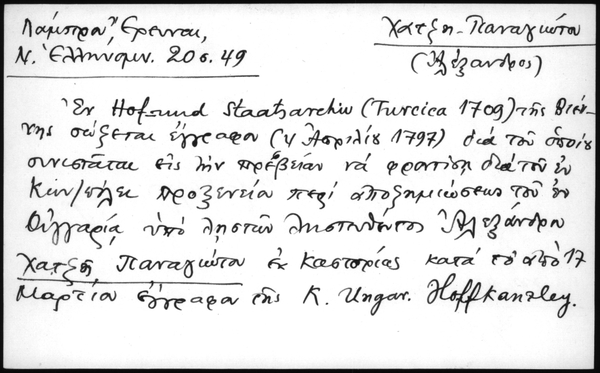 Λάμπρου Ἔρευναι,
Ν. Ἑλληνομν. 20 σ. 49
Χατζῆ-Παναγιώτου
(Ἀλέξανδρος)
Ἐν Hof-und Staatsarchiv (Turcica 1709) τῆς Βιέν-
νης σώζεται ἔγγραφον (4 Ἀπριλίου 1797) διὰ τοῦ ὁποίου
συνιστᾶται εἰς τὴν πρεσβείαν νὰ φροντίσῃ διὰ τοῦ ἐν
Κων/πόλει προξενείου περὶ ἀποζημιώσεως τοῦ ἐν
Οὐγγαρίᾳ ὑπὸ λῃστῶν λῃστευθέντος Ἀλεξάνδρου
Χατζῆ Παναγιώτου ἐκ Καστορίας κατὰ τὸ ἀπὸ 17
Μαρτίου ἔγγραφον τῆς K. Ungar. Hoffkanzley.